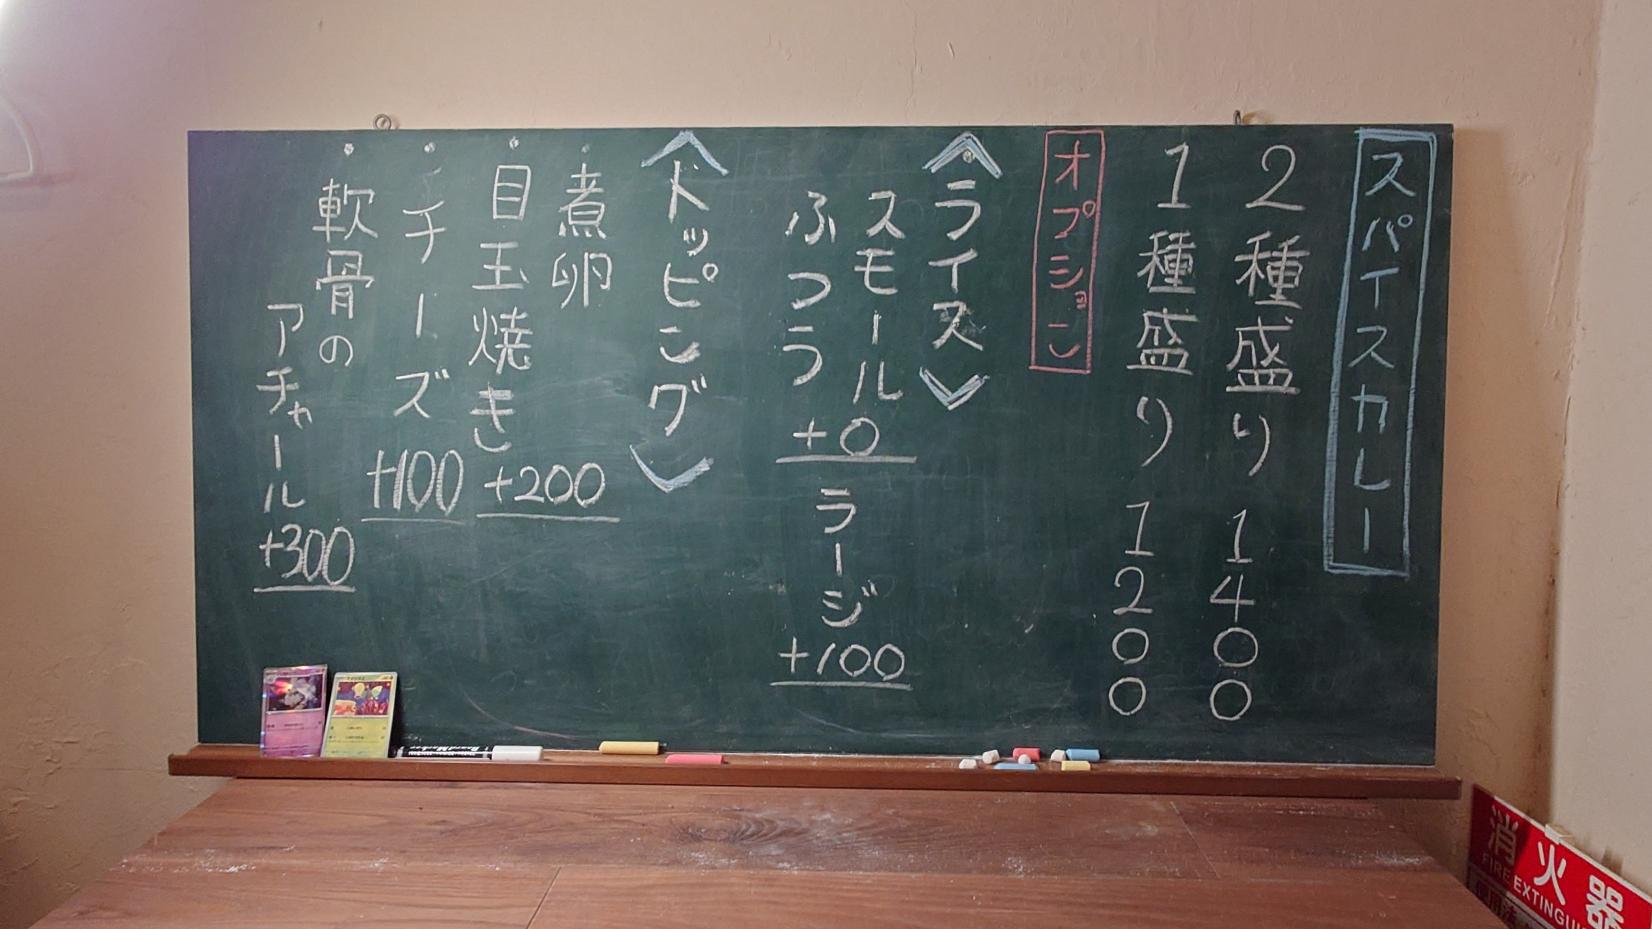 スパイスカレー
2種盛り 1400
1種盛り 1200
オプション
《ライス》
スモール
ふつう +0
ラージ +100
《トッピング》
・煮卵
・目玉焼き +200
・チーズ +100
・軟骨の
アチャール +300
消火器
FIRE EXTINGUI
使用法
BoardMarker